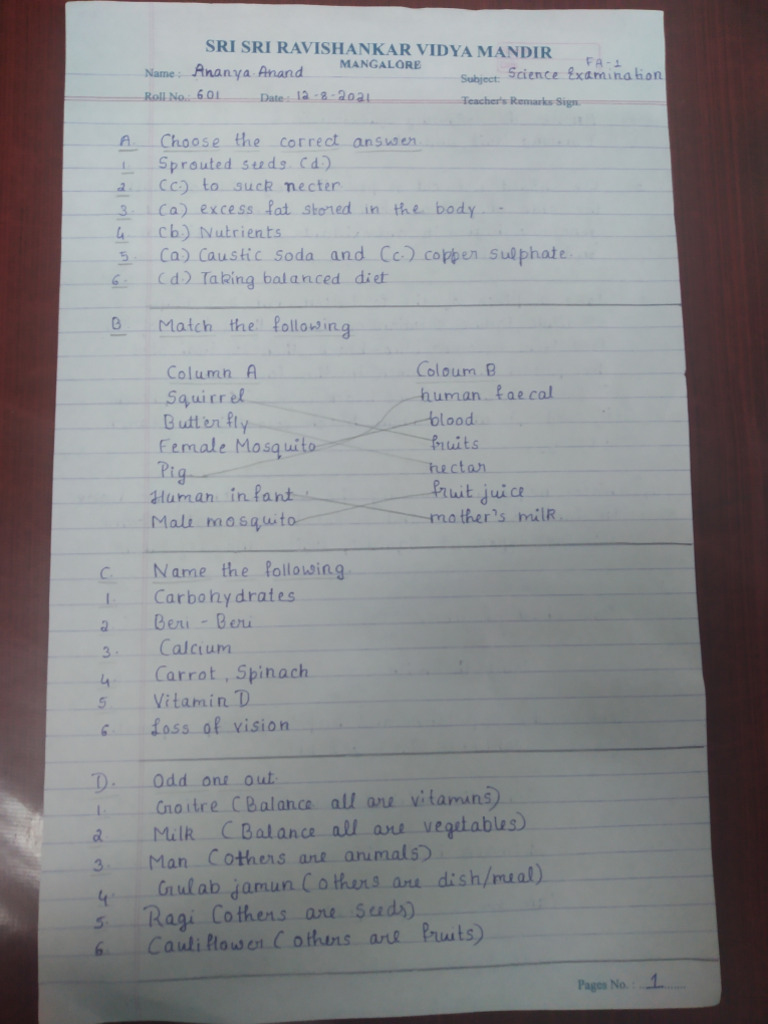 SRI SRI RAVISHANKAR VIDYA MANDIR
MANGALORE
FA-1
Name : Ananya Anand Subject: Science Examination
Roll No.: 601 Date : 12-8-2021 Teacher's Remarks Sign.
A. Choose the correct answer.
1. Sprouted seeds (d.)
2. (c.) to suck necter
3. (a) excess fat stored in the body
4. (b.) Nutrients
5. (a) Caustic soda and (c.) copper sulphate.
6. (d.) Taking balanced diet
B Match the following
Column A Coloum B
Squirrel human faecal
Butterfly blood
Female Mosquito fruits
Pig nectar
Human infant fruit juice
Male mosquito mother's milk
C. Name the following
1. Carbohydrates
2 Beri - Beri
3. Calcium
4. Carrot, Spinach
5 Vitamin D
6. Loss of vision
D. Odd one out
1. Goitre (Balance all are vitamins)
2 Milk (Balance all are vegetables)
3. Man (others are animals)
4. Gulab jamun (others are dish/meal)
5. Ragi (others are seeds)
6 Cauliflower (others are fruits)
Pages No. : 1